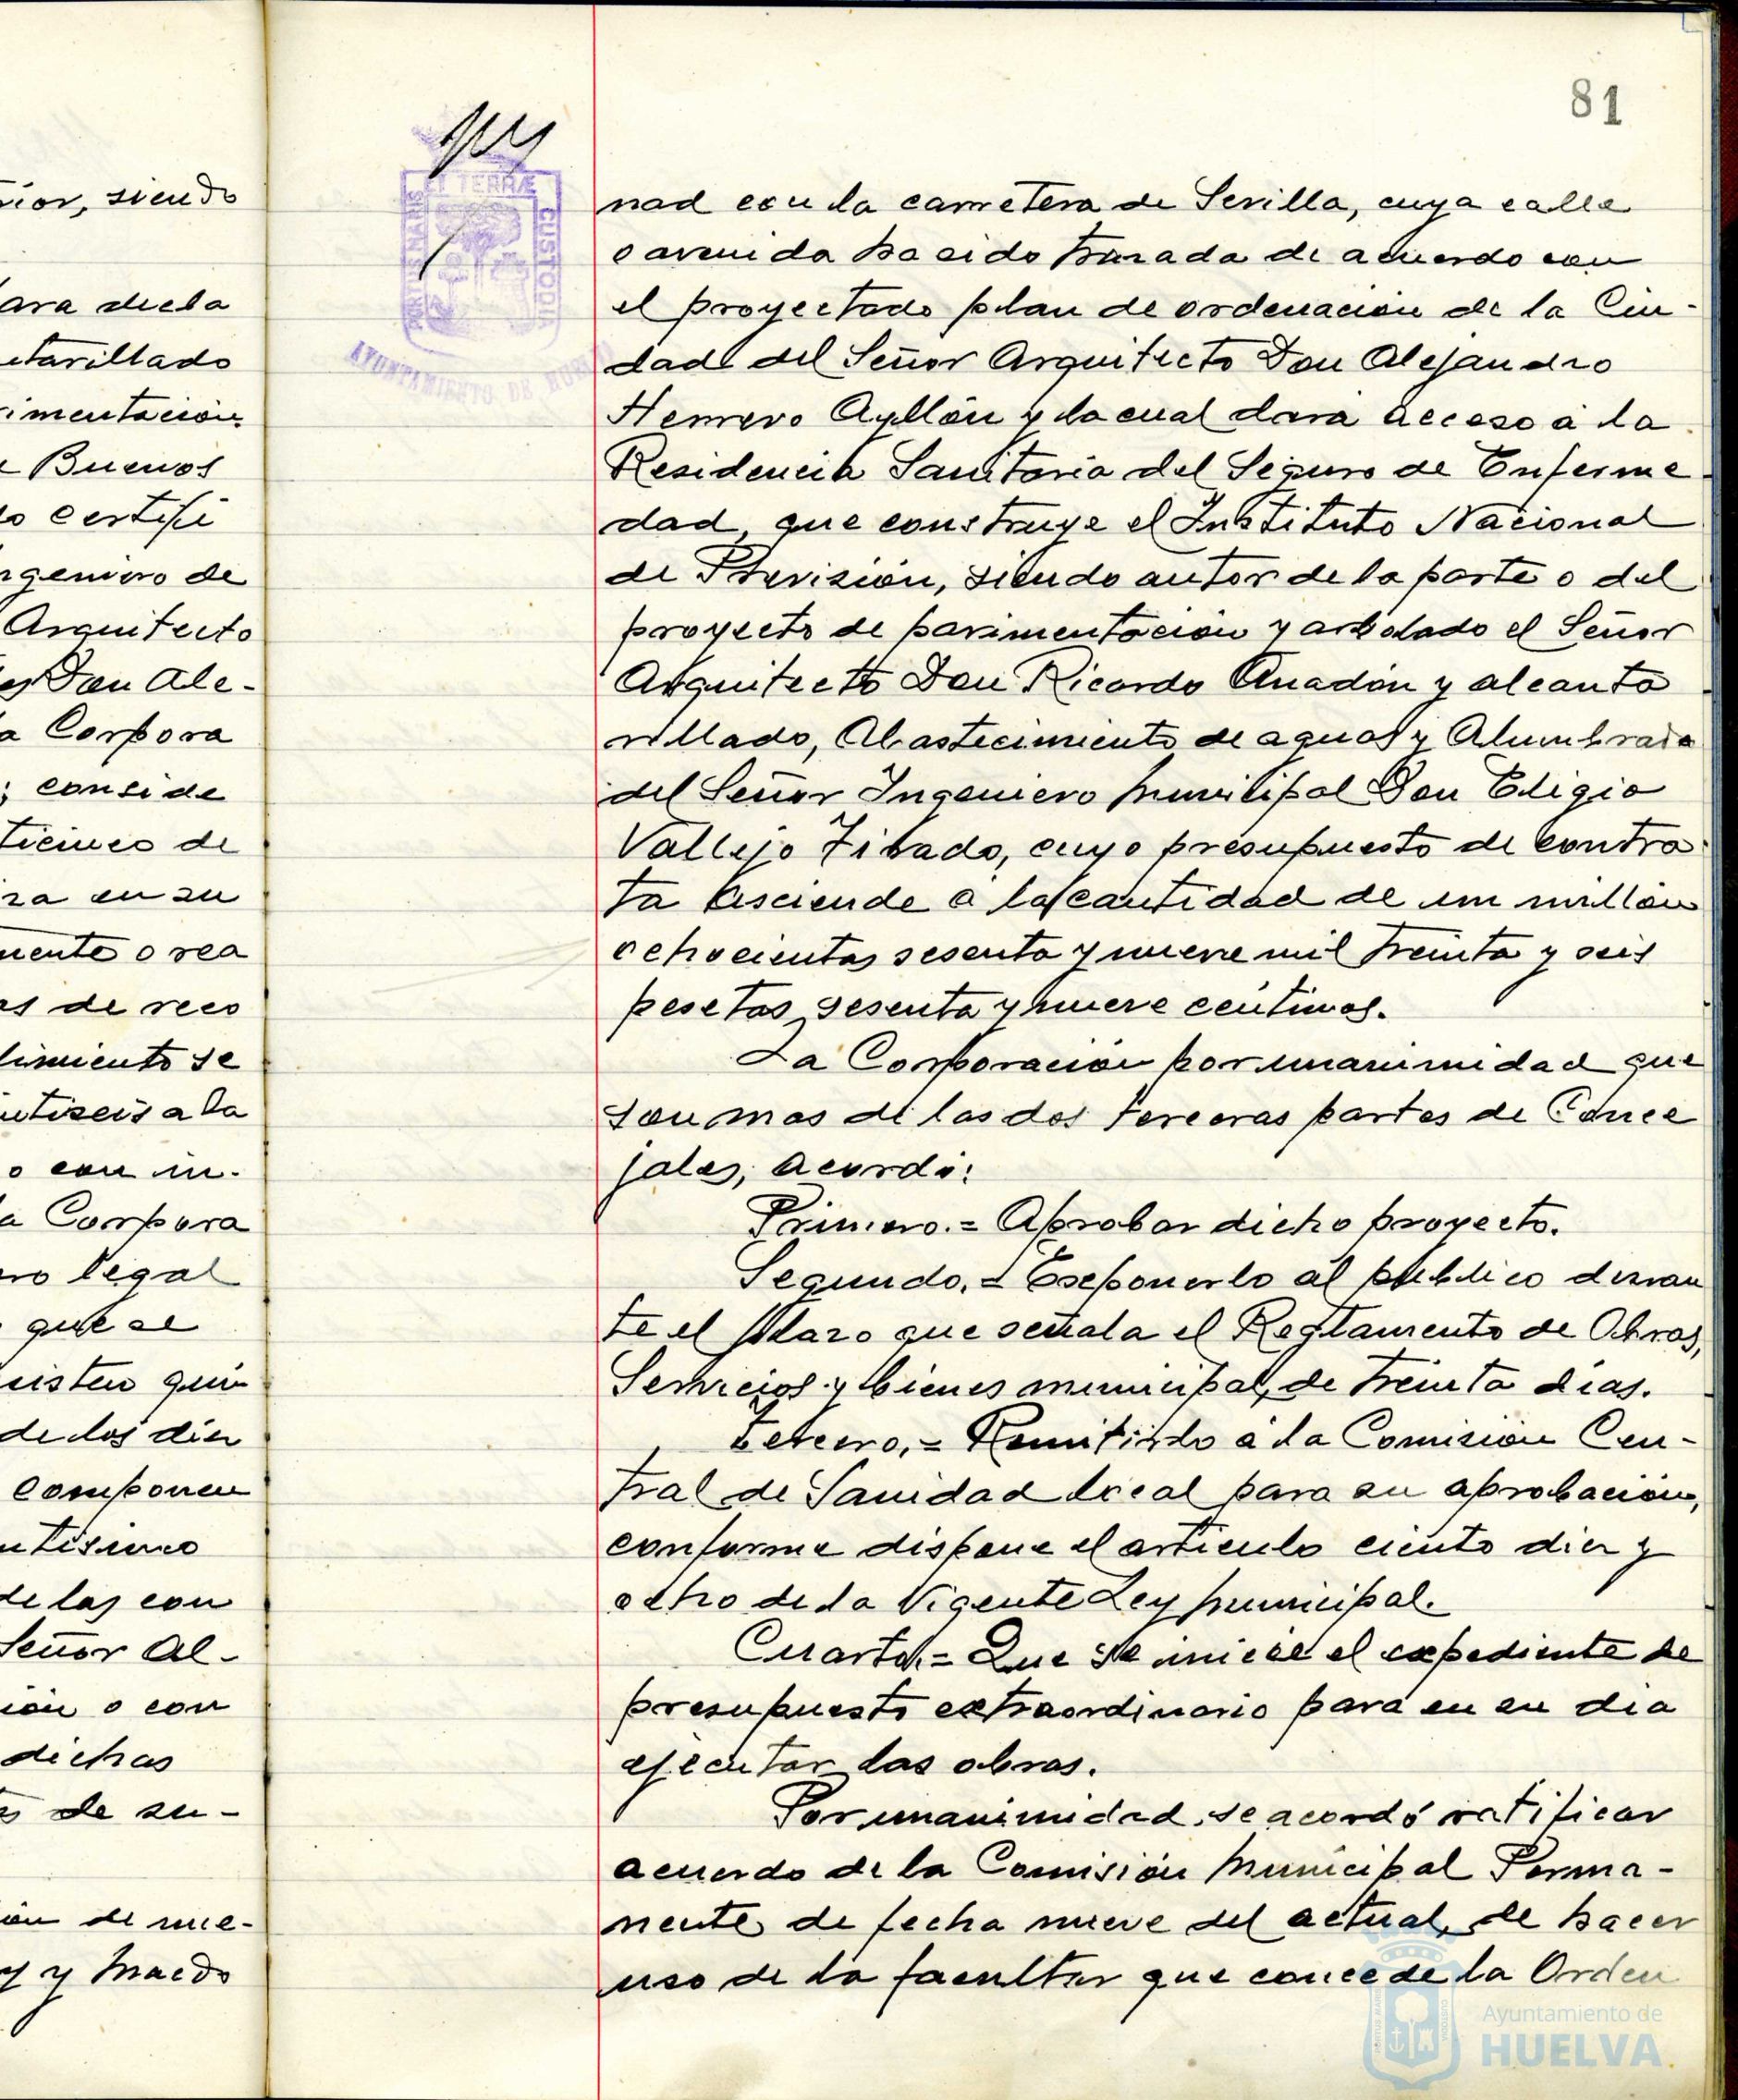 81
rior, siendo
ara dicha
ntarillado
imentación
e Buenos
do certifi
ngeniero de
Arquitecto
es Don Ale-
a Corpora
; conside
ticinco de
za en su
mente o rea
as de reco
limiento se
ntiseis a la
o con in-
a Corpora
ro legal
que se
sisten quin
de los diez
componen
ntisinco
de las con
Señor Al-
ión o con
dichas
de su-
ón de nue-
y y Macdo
ET TERRÆ
PORTUS MARIS
CUSTODIA
AYUNTAMIENTO DE HUELVA
nad con la carretera de Sevilla, cuya calle
o avenida ha sido trazada de acuerdo con
el proyectado plan de ordenación de la Ciu-
dad del Señor Arquitecto Don Alejandro
Herrero Ayllón y la cual dará acceso á la
Residencia Sanitaria del Seguro de Enferme
dad, que construye el Instituto Nacional
de Previsión, siendo autor de la parte o del
proyecto de pavimentación y arbolado el Señor
Arquitecto Don Ricardo Anadón y alcanta
rillado, Abastecimiento de aguas y Alumbrado
del Señor Ingeniero municipal Don Eligio
Vallejo Tirado, cuyo presupuesto de contra
ta asciende á la cantidad de un millón
ochocientas sesenta y nueve mil treinta y seis
pesetas, sesenta y nueve céntimos.
La Corporación por unanimidad que
son mas de las dos terceras partes de Conce
jales, acordó:
Primero.= Aprobar dicho proyecto.
Segundo.= Exponerlo al público duran
te el plazo que señala el Reglamento de Obras,
Servicios y bienes municipal, de treinta días.
Tercero.= Remitirlo á la Comisión Cen-
tral de Sanidad local para su aprobación,
conforme dispone el artículo ciento diez y
ocho de la Vigente Ley municipal.
Cuarto.= Que se inicie el expediente de
presupuesto extraordinario para en su día
ejecutar las obras.
Por unanimidad, se acordó ratificar
acuerdo de la Comisión Municipal Perma-
nente de fecha nueve del actual, de hacer
uso de la facultar que concede la Orden
Ayuntamiento de
HUELVA